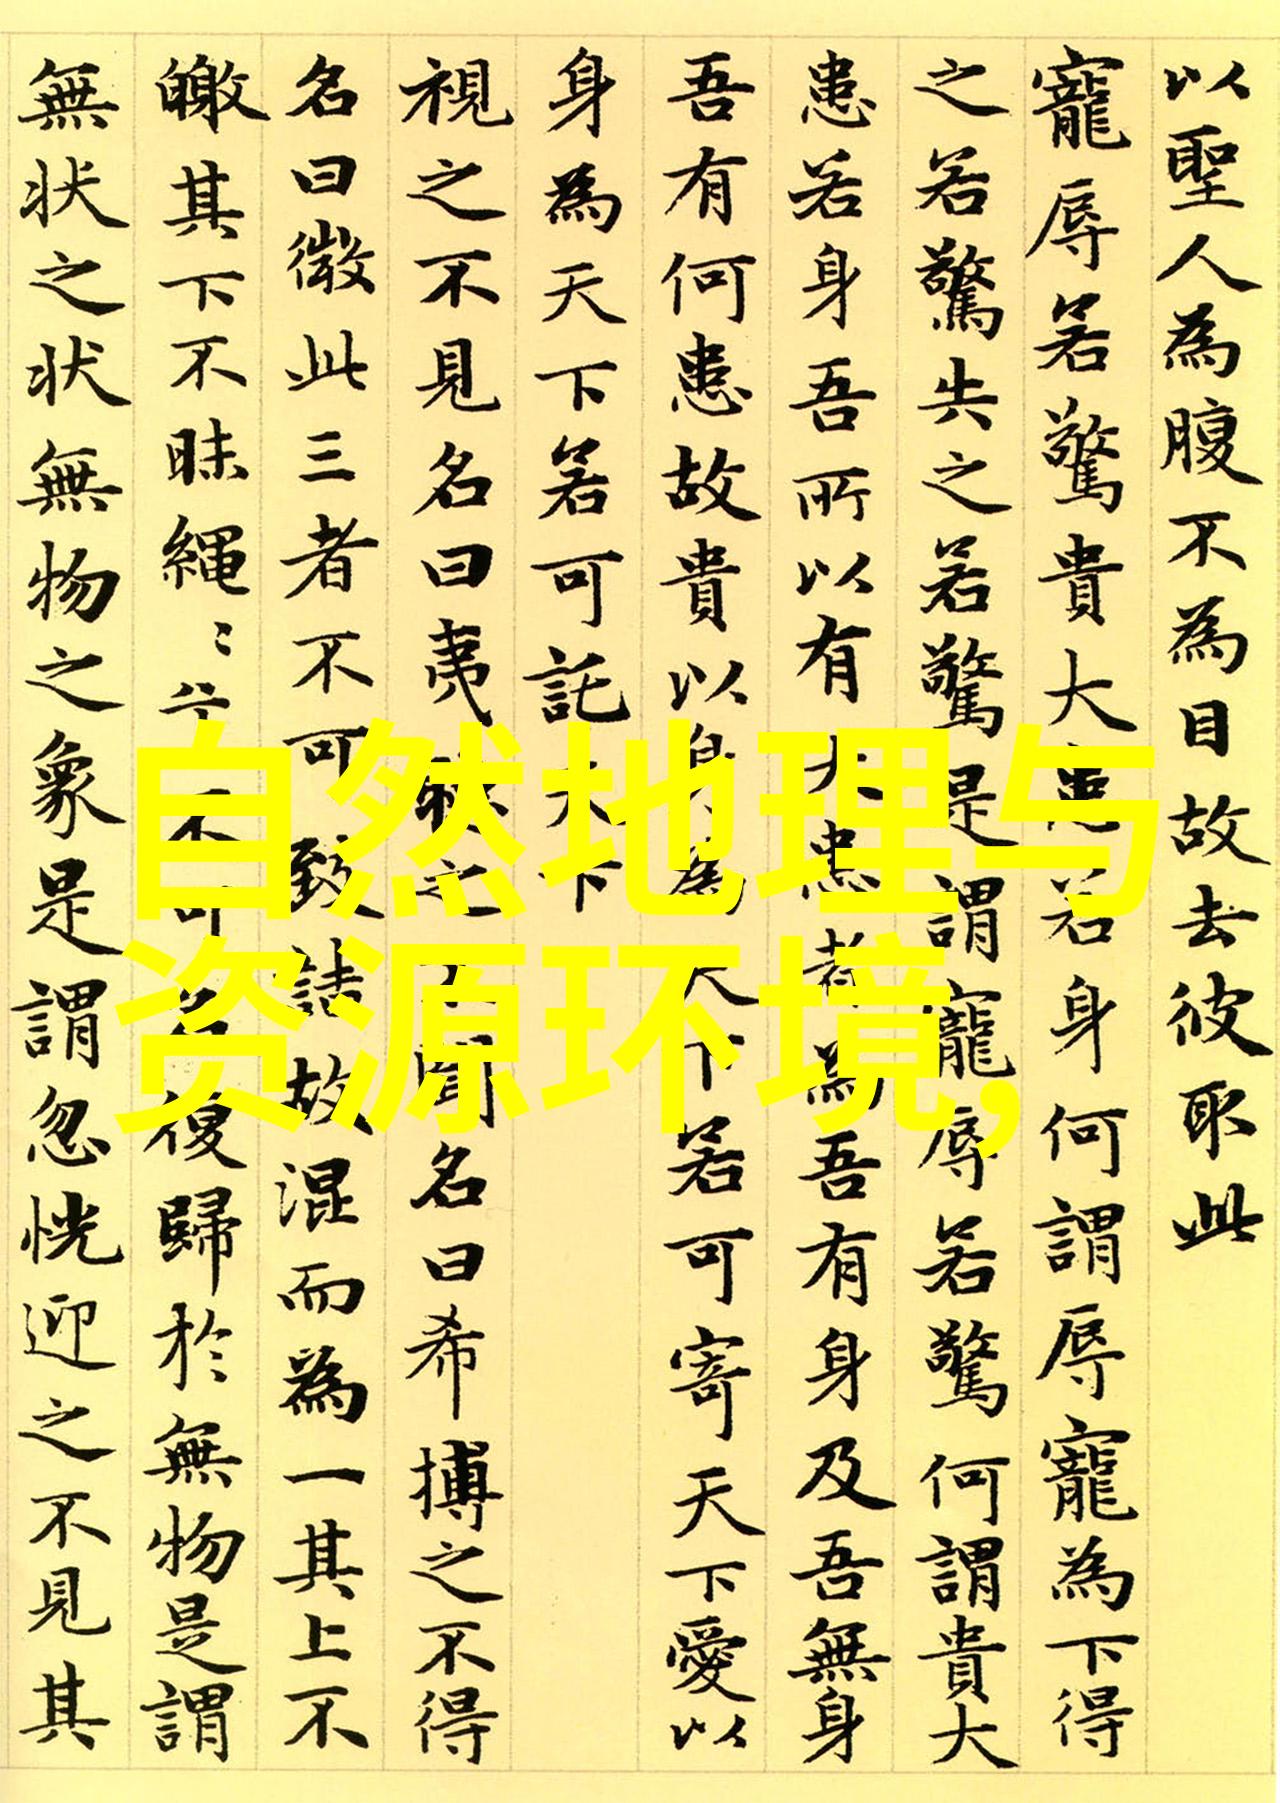 以聖人為腹不為目故去彼取此
寵辱若驚貴大患若身何謂辱寵為下得
之若驚失之若驚是謂寵辱若驚何謂貴大
患若身吾所以有大患者為吾有身及吾無身
吾有何患故貴以身為天下若可寄天下愛以
身為天下若可託天下
視之不見名曰夷聽之不聞名曰希搏之不得
名曰微此三者不可致詰故混而為一其上不
皦其下不昧繩〻兮不可名復歸於無物是謂
無状之状無物之象是謂忽恍迎之不見其
自然地理与
资源环境,